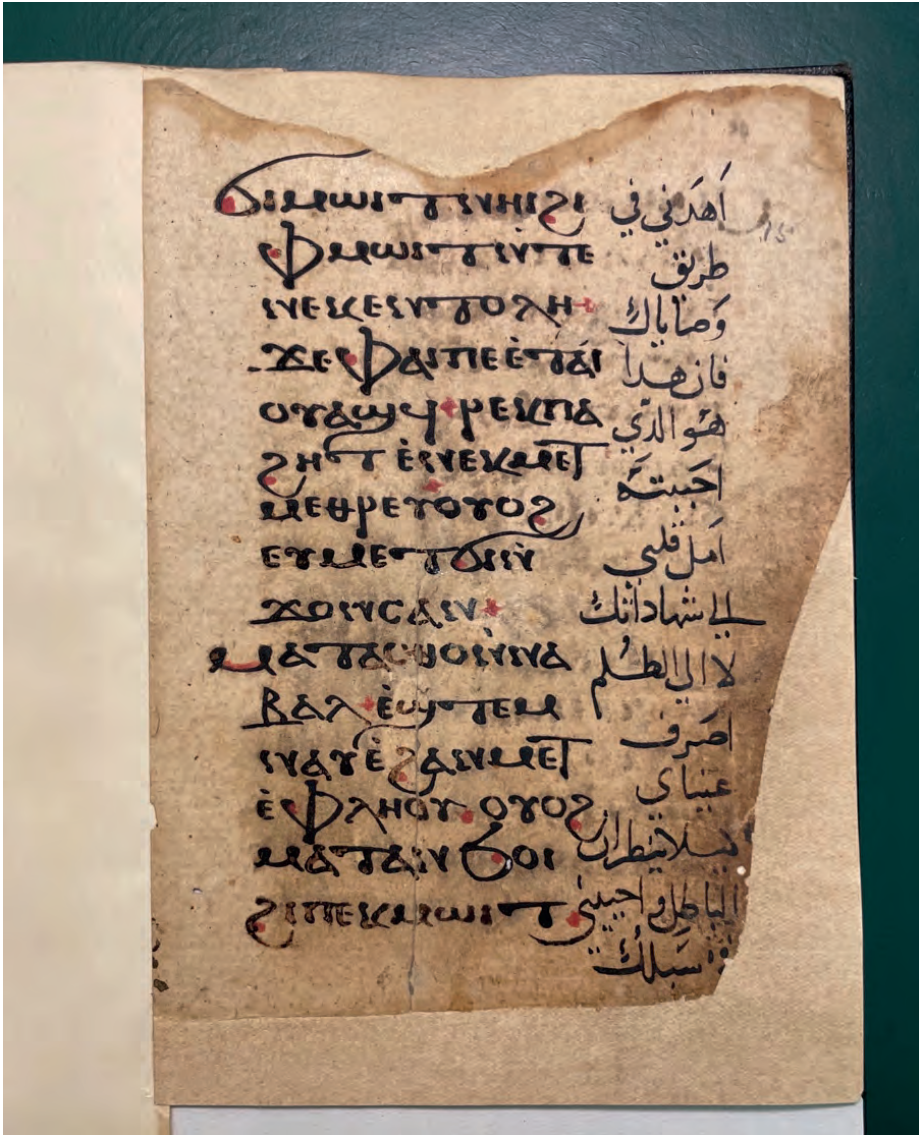 ϭⲓⲙⲱⲓⲧ ⲛⲏⲓ ϩⲓ
ⲫⲙⲱⲓⲧ ⲛ̀ⲧⲉ
ⲛⲉⲕⲉⲛⲧⲟⲗⲏ
ϫⲉ ⲫⲁⲓ ⲡⲉ ⲉ̀ⲧⲁⲓ
ⲟⲩⲁϣϥ ⲣⲉⲕ ⲡⲁ
ϩⲏⲧ ⲉ̀ⲛⲉⲕⲙⲉⲧ
ⲙⲉⲑⲣⲉⲩ ⲟⲩⲟϩ
ⲉⲩⲙⲉⲧϭⲓⲛ̀
ϫⲟⲛⲥ ⲁⲛ
ⲙⲁⲧⲁⲥⲑⲟ ⲛ̀ⲛⲁ
ⲃⲁⲗ ⲉ̀ϣⲧⲉⲙ
ⲛⲁⲩ ⲉ̀ϩⲁⲛⲙⲉⲧ
ⲉ̀ⲫⲗⲏⲟⲩ ⲟⲩⲟϩ
ⲙⲁⲧⲁⲛϧⲟⲓ
ϩⲓ ⲡⲉⲕⲙⲱⲓⲧ
اَهدَني في
طريق
وَصاياكَ
فان هدا
هُو الدي
احَببتَه
اَمل قلبي
الي شهاداتك
لا الي الظُلم
اصَرف
عيناي
ليلا ينظران
الباطل واحييني
في سَبلكَ